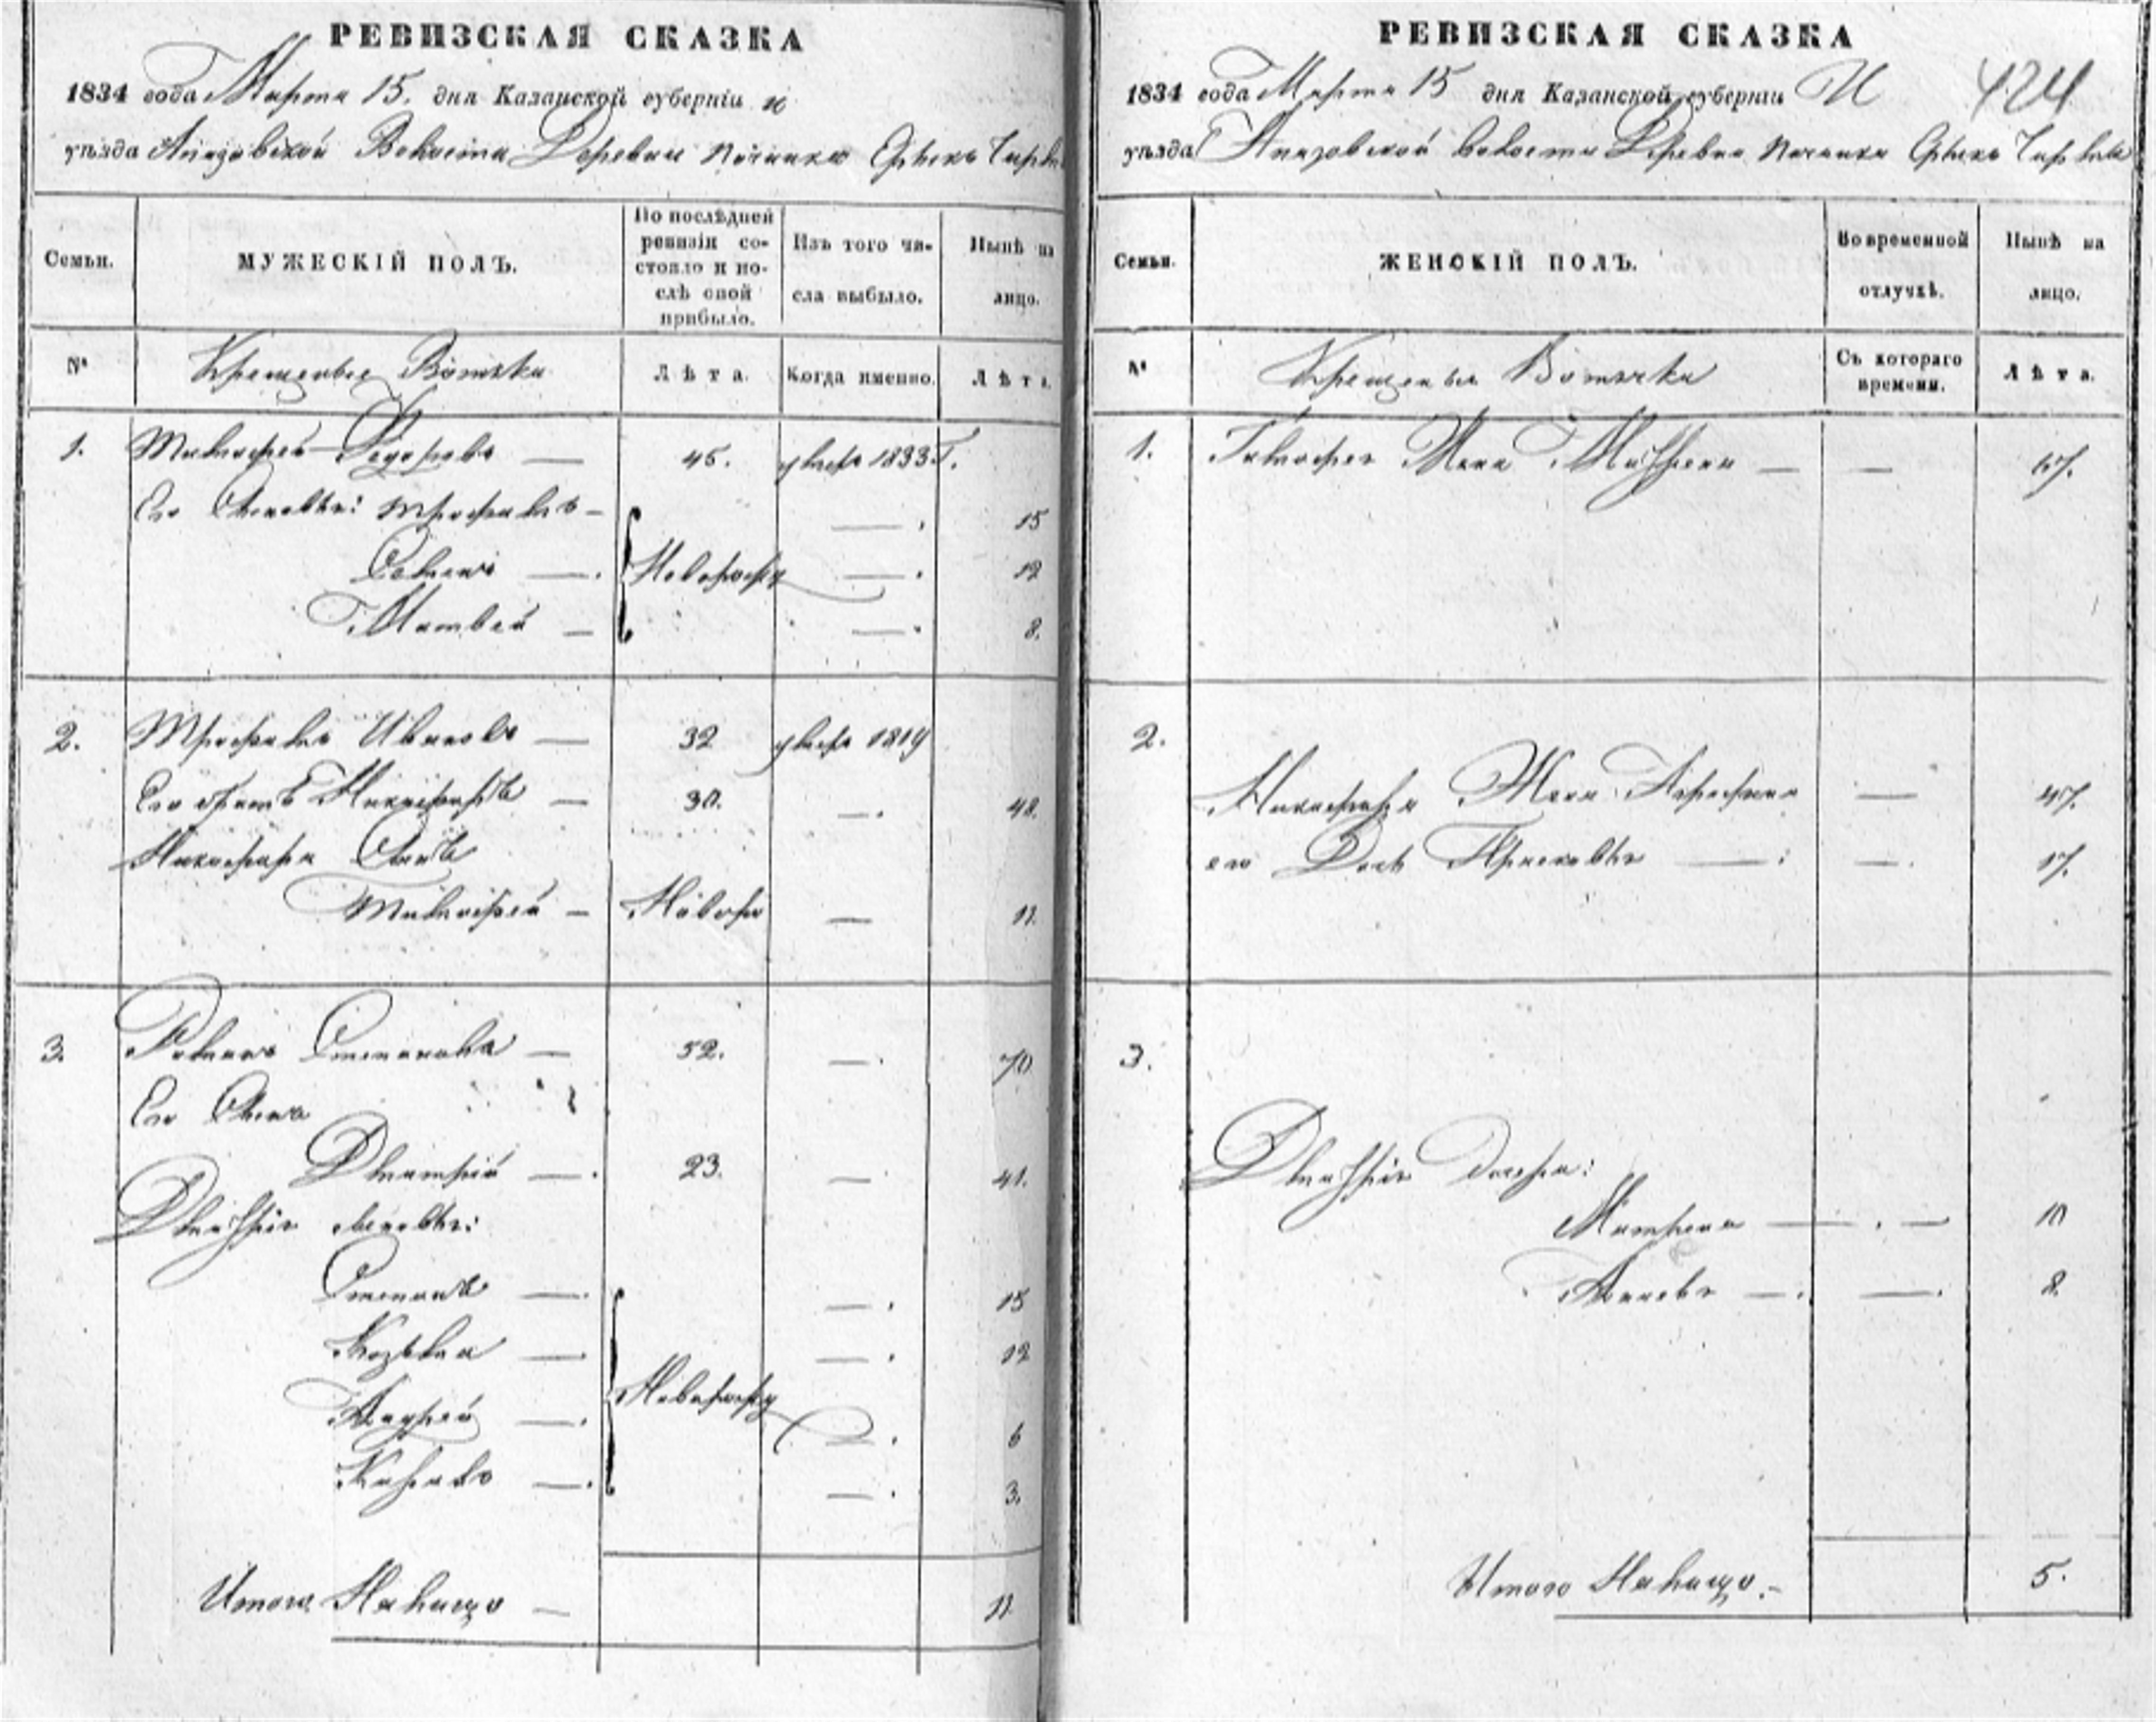 РЕВИЗСКАЯ СКАЗКА
1834 года Марта 15. дня Казанской губерніи и
уѣзда Волости Деревни Починка
Семьи.
МУЖЕСКІЙ ПОЛЪ.
По послѣдней ревизіи состояло и послѣ оной прибыло.
Изъ того числа выбыло.
Нынѣ на лицо.
№
Крещеные Вотяки
Лѣта.
Когда именно.
Лѣта.
1. Тимофей Федоровъ — 45. умеръ 1833 Г.
Его Сыновья: Трофимъ — — 15
Семенъ — Новорож — 12
Матвей — — 8.
2. Трофимъ Ивановъ — 32 умеръ 1819
Его братъ Никифоръ — 30. — 48.
Никифора Сынъ
Тимофей — Новорож — 11.
3. Романъ Степановъ — 52. — 70
Его Сынъ
Дмитрій — 23. — 41.
Дмитрія сыновья:
Степанъ — — 15
Козьма — — 12
Андрей — Новорож — 6
— 3.
Итого Налицо — 11.
РЕВИЗСКАЯ СКАЗКА
1834 года Марта 15 дня Казанской губерніи И 424
уѣзда Волости Деревни Починка
Семьи.
ЖЕНСКІЙ ПОЛЪ.
Во временной отлучкѣ.
Нынѣ на лицо.
№
Крещеные Вотячки
Съ котораго времени.
Лѣта.
1. Тимофея Жена Матрена — —
2.
Никифора Жена — 47.
его Дочь Прасковья — — 17.
3.
Дмитрія Дочери:
Матрена — — 10
— — 8.
Итого Налицо. — 5.